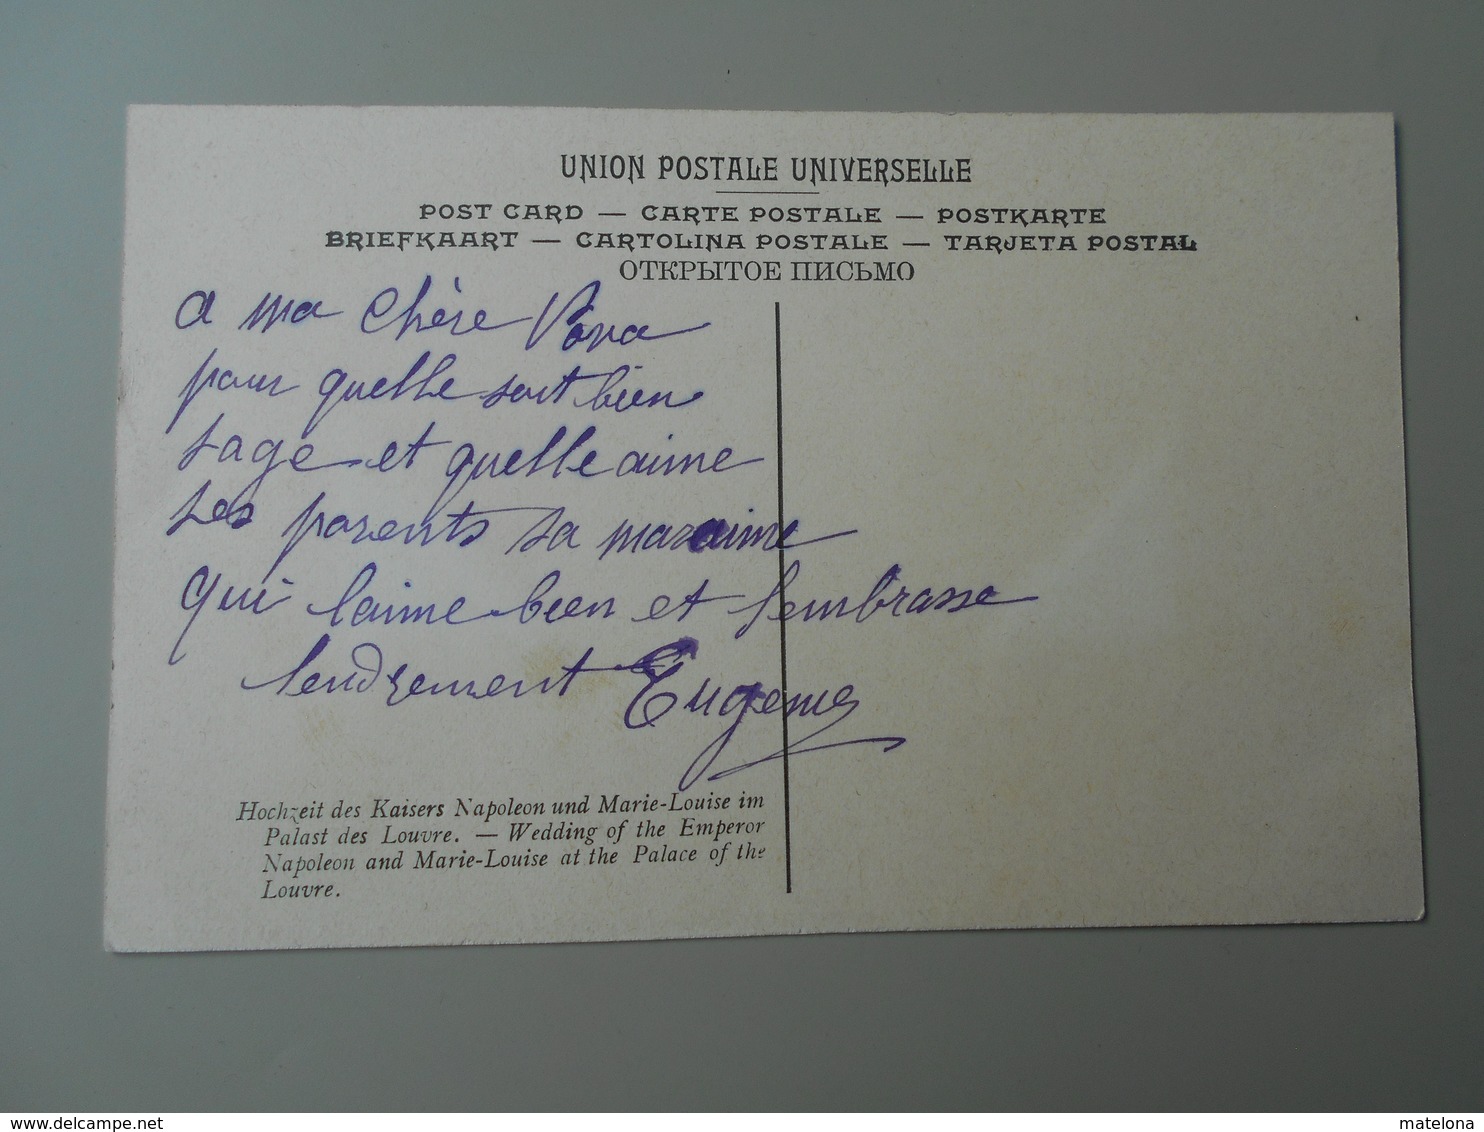 UNION POSTALE UNIVERSELLE
POST CARD — CARTE POSTALE — POSTKARTE
BRIEFKAART — CARTOLINA POSTALE — TARJETA POSTAL
ОТКРЫТОЕ ПИСЬМО
a ma chère
pour quelle soit bien
sage et quelle aime
ses parents sa maraine
qui laime bien et lembrasse
tendrement Eugenie
Hochzeit des Kaisers Napoleon und Marie-Louise im
Palast des Louvre. — Wedding of the Emperor
Napoleon and Marie-Louise at the Palace of the
Louvre.
www.delcampe.net
matelona